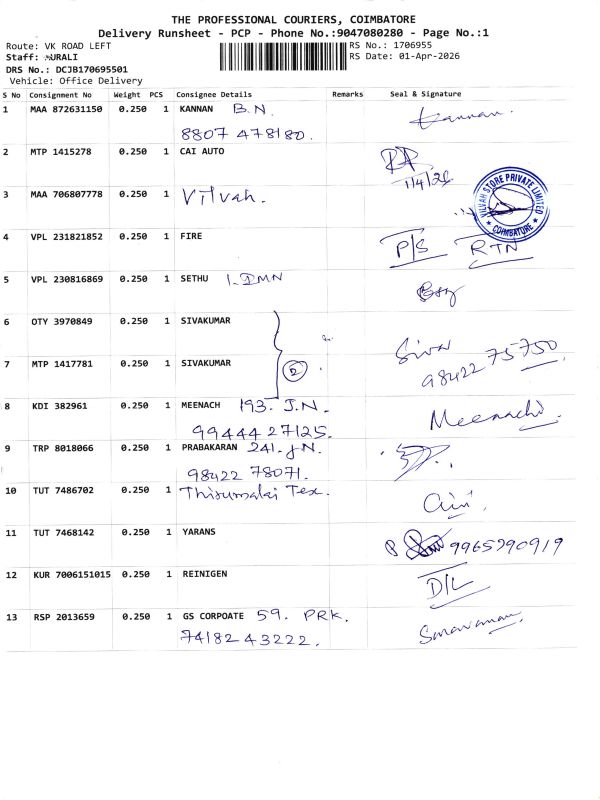 THE PROFESSIONAL COURIERS, COIMBATORE
Delivery Runsheet - PCP - Phone No.:9047080280 - Page No.:1
Route: VK ROAD LEFT RS No.: 1706955
Staff: MURALI RS Date: 01-Apr-2026
DRS No.: DCJB170695501
Vehicle: Office Delivery
S No Consignment No Weight PCS Consignee Details Remarks Seal & Signature
1 MAA 872631150 0.250 1 KANNAN B.N. Kannan.
8807 478180.
2 MTP 1415278 0.250 1 CAI AUTO
1/4/26
3 MAA 706807778 0.250 1 Vilvah. VILVAH STORE PRIVATE LIMITED COIMBATORE
4 VPL 231821852 0.250 1 FIRE P/S RTN
5 VPL 230816869 0.250 1 SETHU
6 OTY 3970849 0.250 1 SIVAKUMAR Siva
98422 75750
7 MTP 1417781 0.250 1 SIVAKUMAR 2
8 KDI 382961 0.250 1 MEENACH 193. J.N. Meenachi.
99444 27125.
9 TRP 8018066 0.250 1 PRABAKARAN 241. J.N.
98422 78071.
10 TUT 7486702 0.250 1 Thirumalai Tex.
11 TUT 7468142 0.250 1 YARANS 9965290919
12 KUR 7006151015 0.250 1 REINIGEN D/L
13 RSP 2013659 0.250 1 GS CORPOATE 59. PRK. Saravanan
74182 43222.